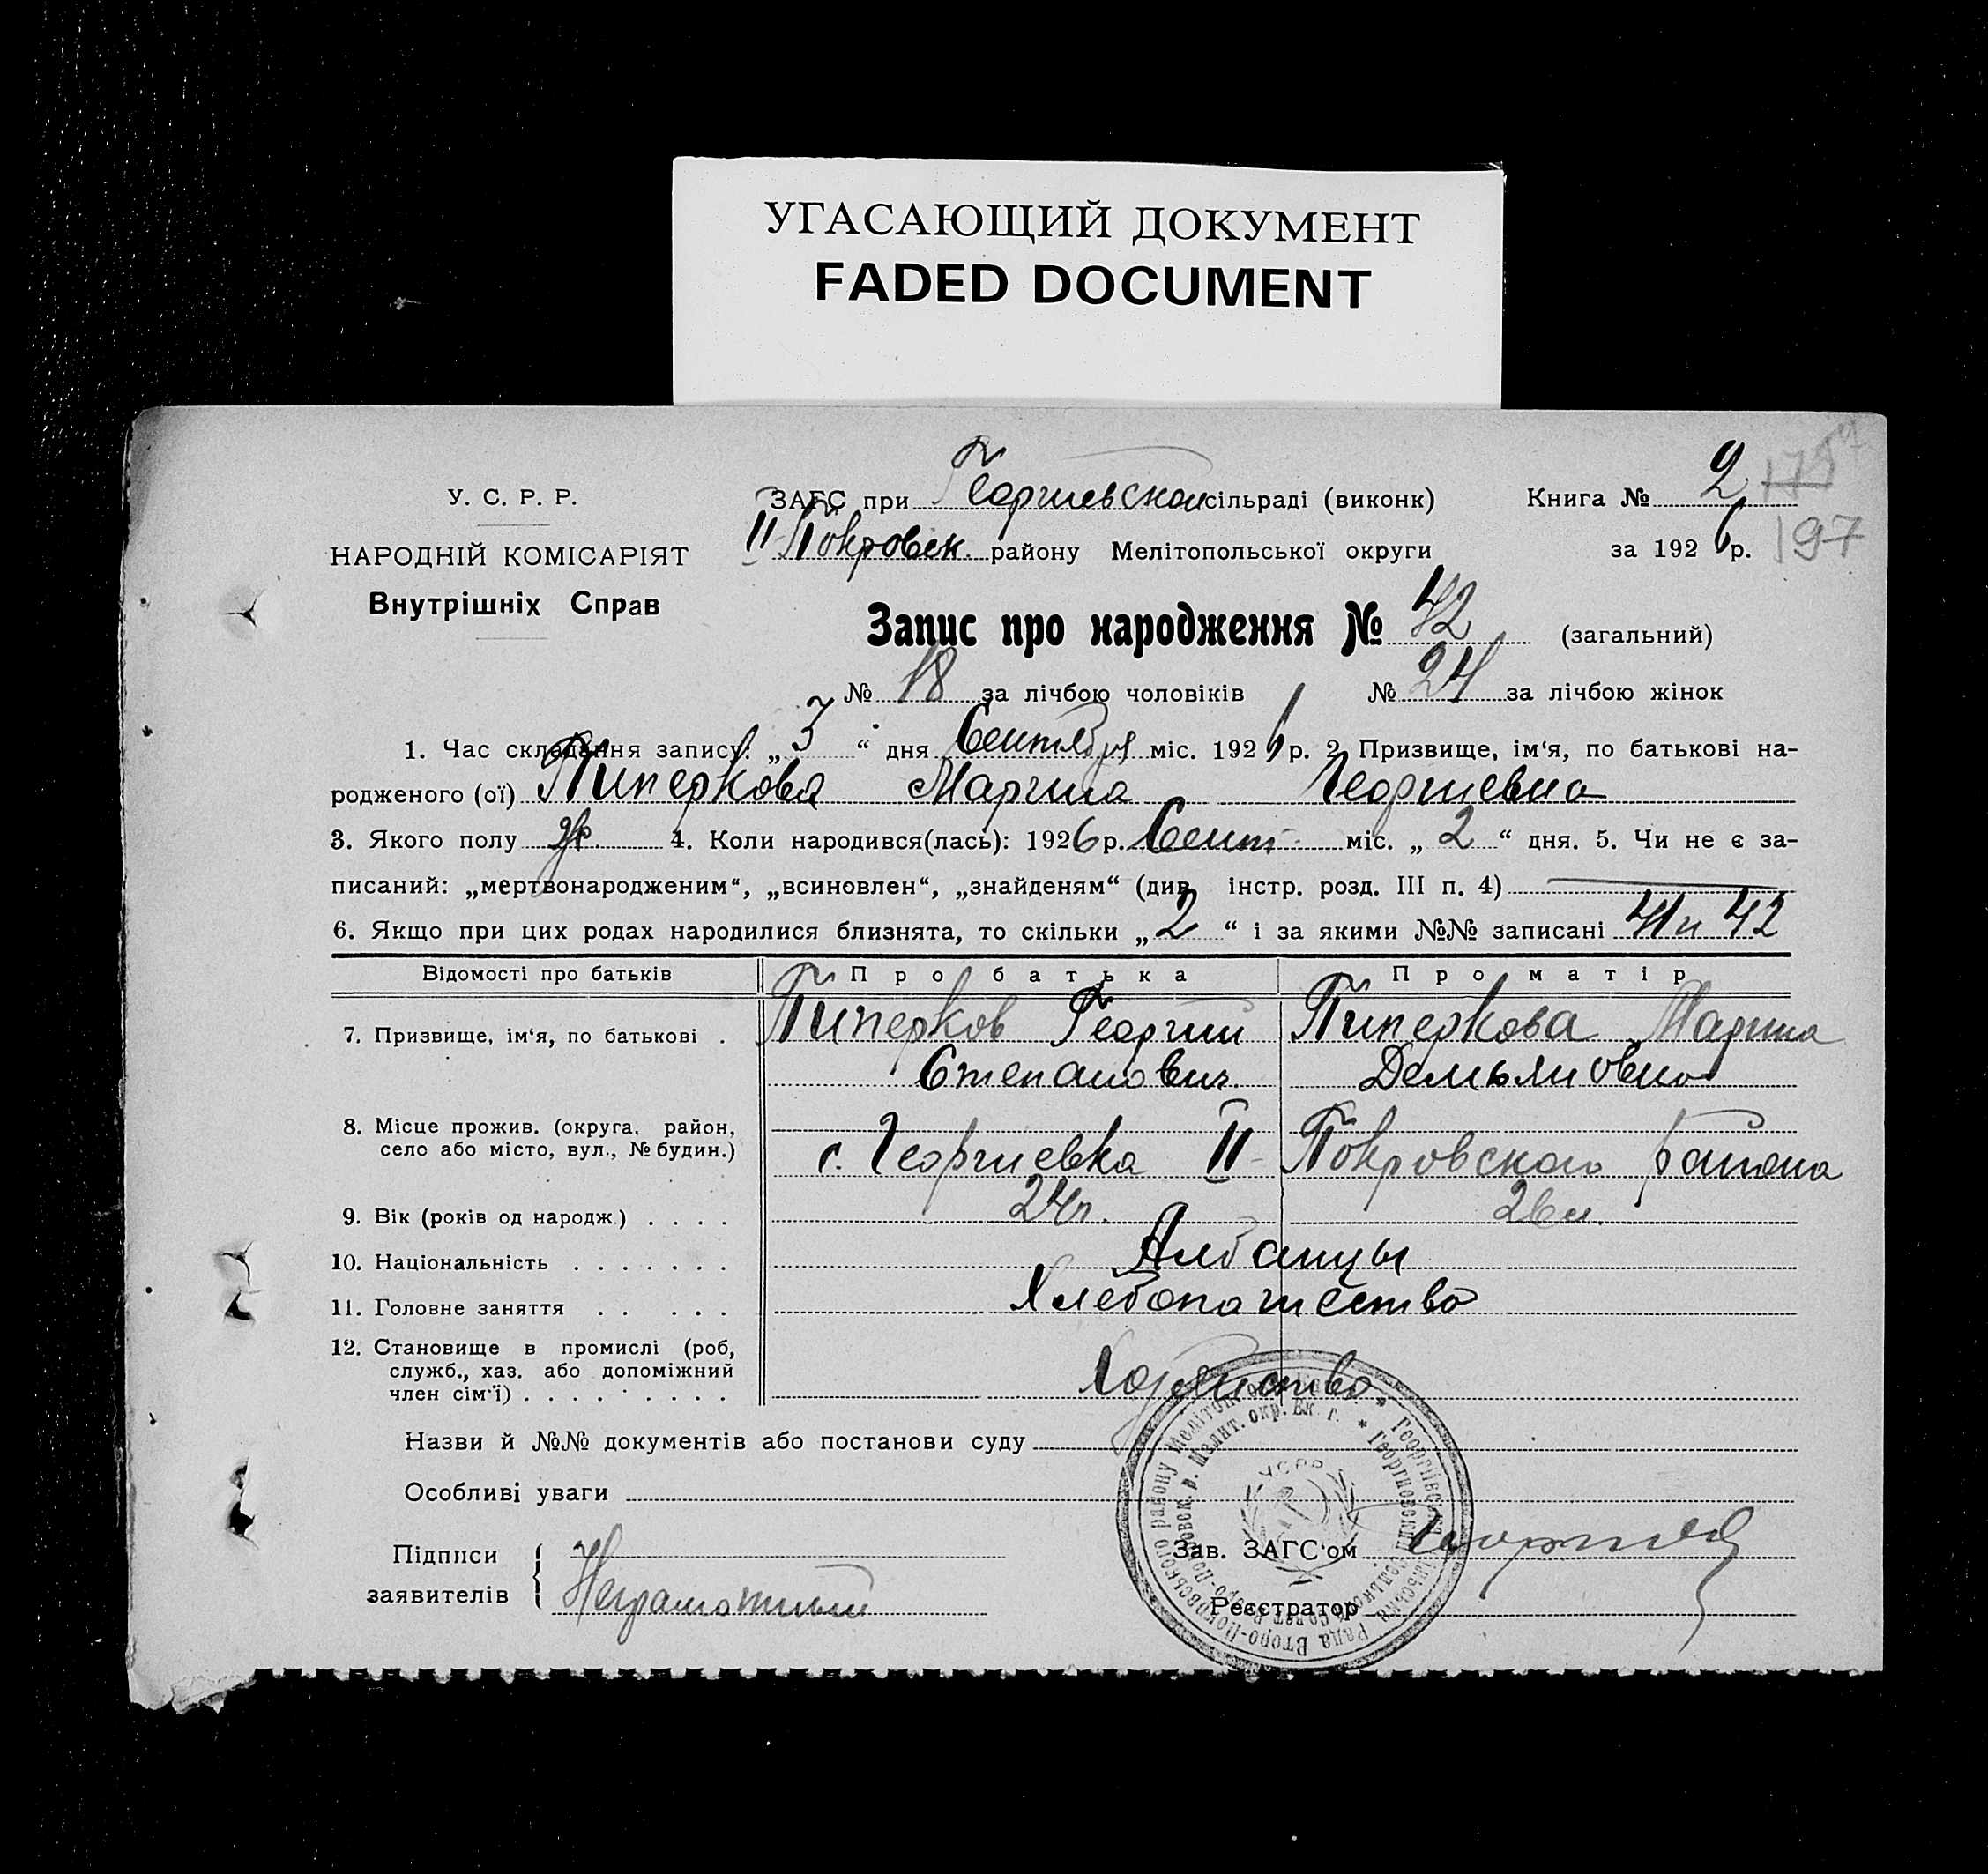 УГАСАЮЩИЙ ДОКУМЕНТ
FADED DOCUMENT
У. С. Р. Р.
НАРОДНІЙ КОМІСАРІЯТ
Внутрішніх Справ
ЗАГС при Георгиевской сільраді (виконк)
II-Покровск. району Мелітопольської округи
Книга № 2
175
за 1926 р. 197
Запис про народження № 42 (загальний)
№ 18 за лічбою чоловіків № 24 за лічбою жінок
1. Час складення запису: „3“ дня Сентября міс. 1926 р. 2 Призвище, ім‘я, по батькові на-
родженого (ої) Пиперкова Марина Георгиевна
3. Якого полу 4. Коли народився(лась): 1926 р. Сент. міс. „2“ дня. 5. Чи не є за-
писаний: „мертвонародженим“, „всиновлен“, „знайденям“ (див. інстр. розд. III п. 4)
6. Якщо при цих родах народилися близнята, то скільки „2“ і за якими №№ записані 41 и 42
Відомості про батьків Про батька Про матір
7. Призвище, ім‘я, по батькові . Пиперков Георгий Пиперкова Марина
Степанович Демьяновна
8. Місце прожив. (округа, район,
село або місто, вул., № будин.) с. Георгиевка II-Покровского района
9. Вік (років од народж.) . . . . 24 г. 26 л.
10. Національність . . . . . . . Албанцы
11. Головне заняття . . . . . Хлебопашество
12. Становище в промислі (роб,
служб., хаз. або допоміжний
член сім‘ї) . . . . . . . . .
Назви й №№ документів або постанови суду
Особливі уваги
Підписи
заявителів Неграмотный
Зав. ЗАГС‘ом
Реєстратор
УСРР